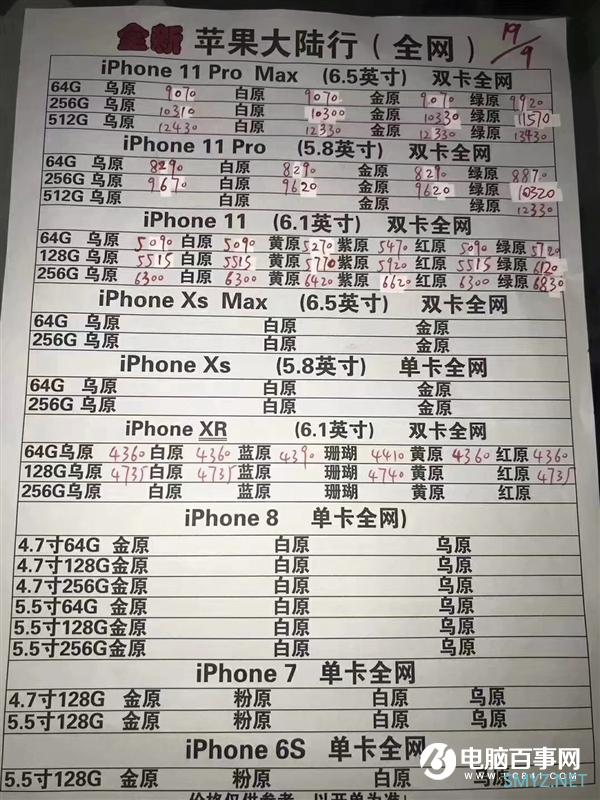 全新 苹果大陆行（全网） 19/9
iPhone 11 Pro Max （6.5英寸） 双卡全网
64G 乌原 9070 白原 9070 金原 9070 绿原 9920
256G 乌原 10310 白原 10300 金原 10330 绿原 11570
512G 乌原 12430 白原 12330 金原 12330 绿原 13430
iPhone 11 Pro （5.8英寸） 双卡全网
64G 乌原 8290 白原 8290 金原 8290 绿原 8870
256G 乌原 9670 白原 9620 金原 9620 绿原 10320
512G 乌原 白原 金原 绿原 12330
iPhone 11 （6.1英寸） 双卡全网
64G 乌原 5090 白原 5090 黄原 5270 紫原 5470 红原 5090 绿原 5720
128G 乌原 5515 白原 5515 黄原 5770 紫原 5920 红原 5515 绿原 6120
256G 乌原 6300 白原 6300 黄原 6420 紫原 6620 红原 6300 绿原 6830
iPhone Xs Max （6.5英寸） 双卡全网
64G 乌原 白原 金原
256G 乌原 白原 金原
iPhone Xs （5.8英寸） 单卡全网
64G 乌原 白原 金原
256G 乌原 白原 金原
iPhone XR （6.1英寸） 双卡全网
64G乌原 4360 白原 4360 蓝原 4390 珊瑚 4410 黄原 4360 红原 4360
128G乌原 4735 白原 4735 蓝原 珊瑚 4740 黄原 红原 4735
256G乌原 白原 蓝原 珊瑚 黄原 红原
iPhone 8 单卡全网)
4.7寸64G 金原 白原 乌原
4.7寸128G 金原 白原 乌原
4.7寸256G 金原 白原 乌原
5.5寸64G 金原 白原 乌原
5.5寸128G金原 白原 乌原
5.5寸256G金原 白原 乌原
iPhone 7 单卡全网
4.7寸128G 金原 粉原 白原 乌原
5.5寸128G 金原 粉原 白原 乌原
iPhone 6S 单卡全网
5.5寸128G 金原 粉原 白原 乌原
价格仅供参考，以开单为准！
电脑百事网
WWW.PC841.COM
SMYZ.NET